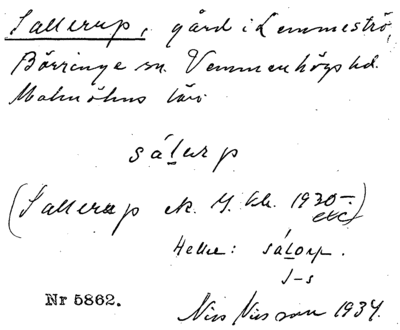 Sallerup, gård i Lemmeströ,
Börringe sn. Vemmenhögs hd.
Malmöhus län
sálurp
(Sallerup ek. 1930-
etc)
Heller: sálorp.
J-s
Nr 5862.
Nils Nilsson 1934.